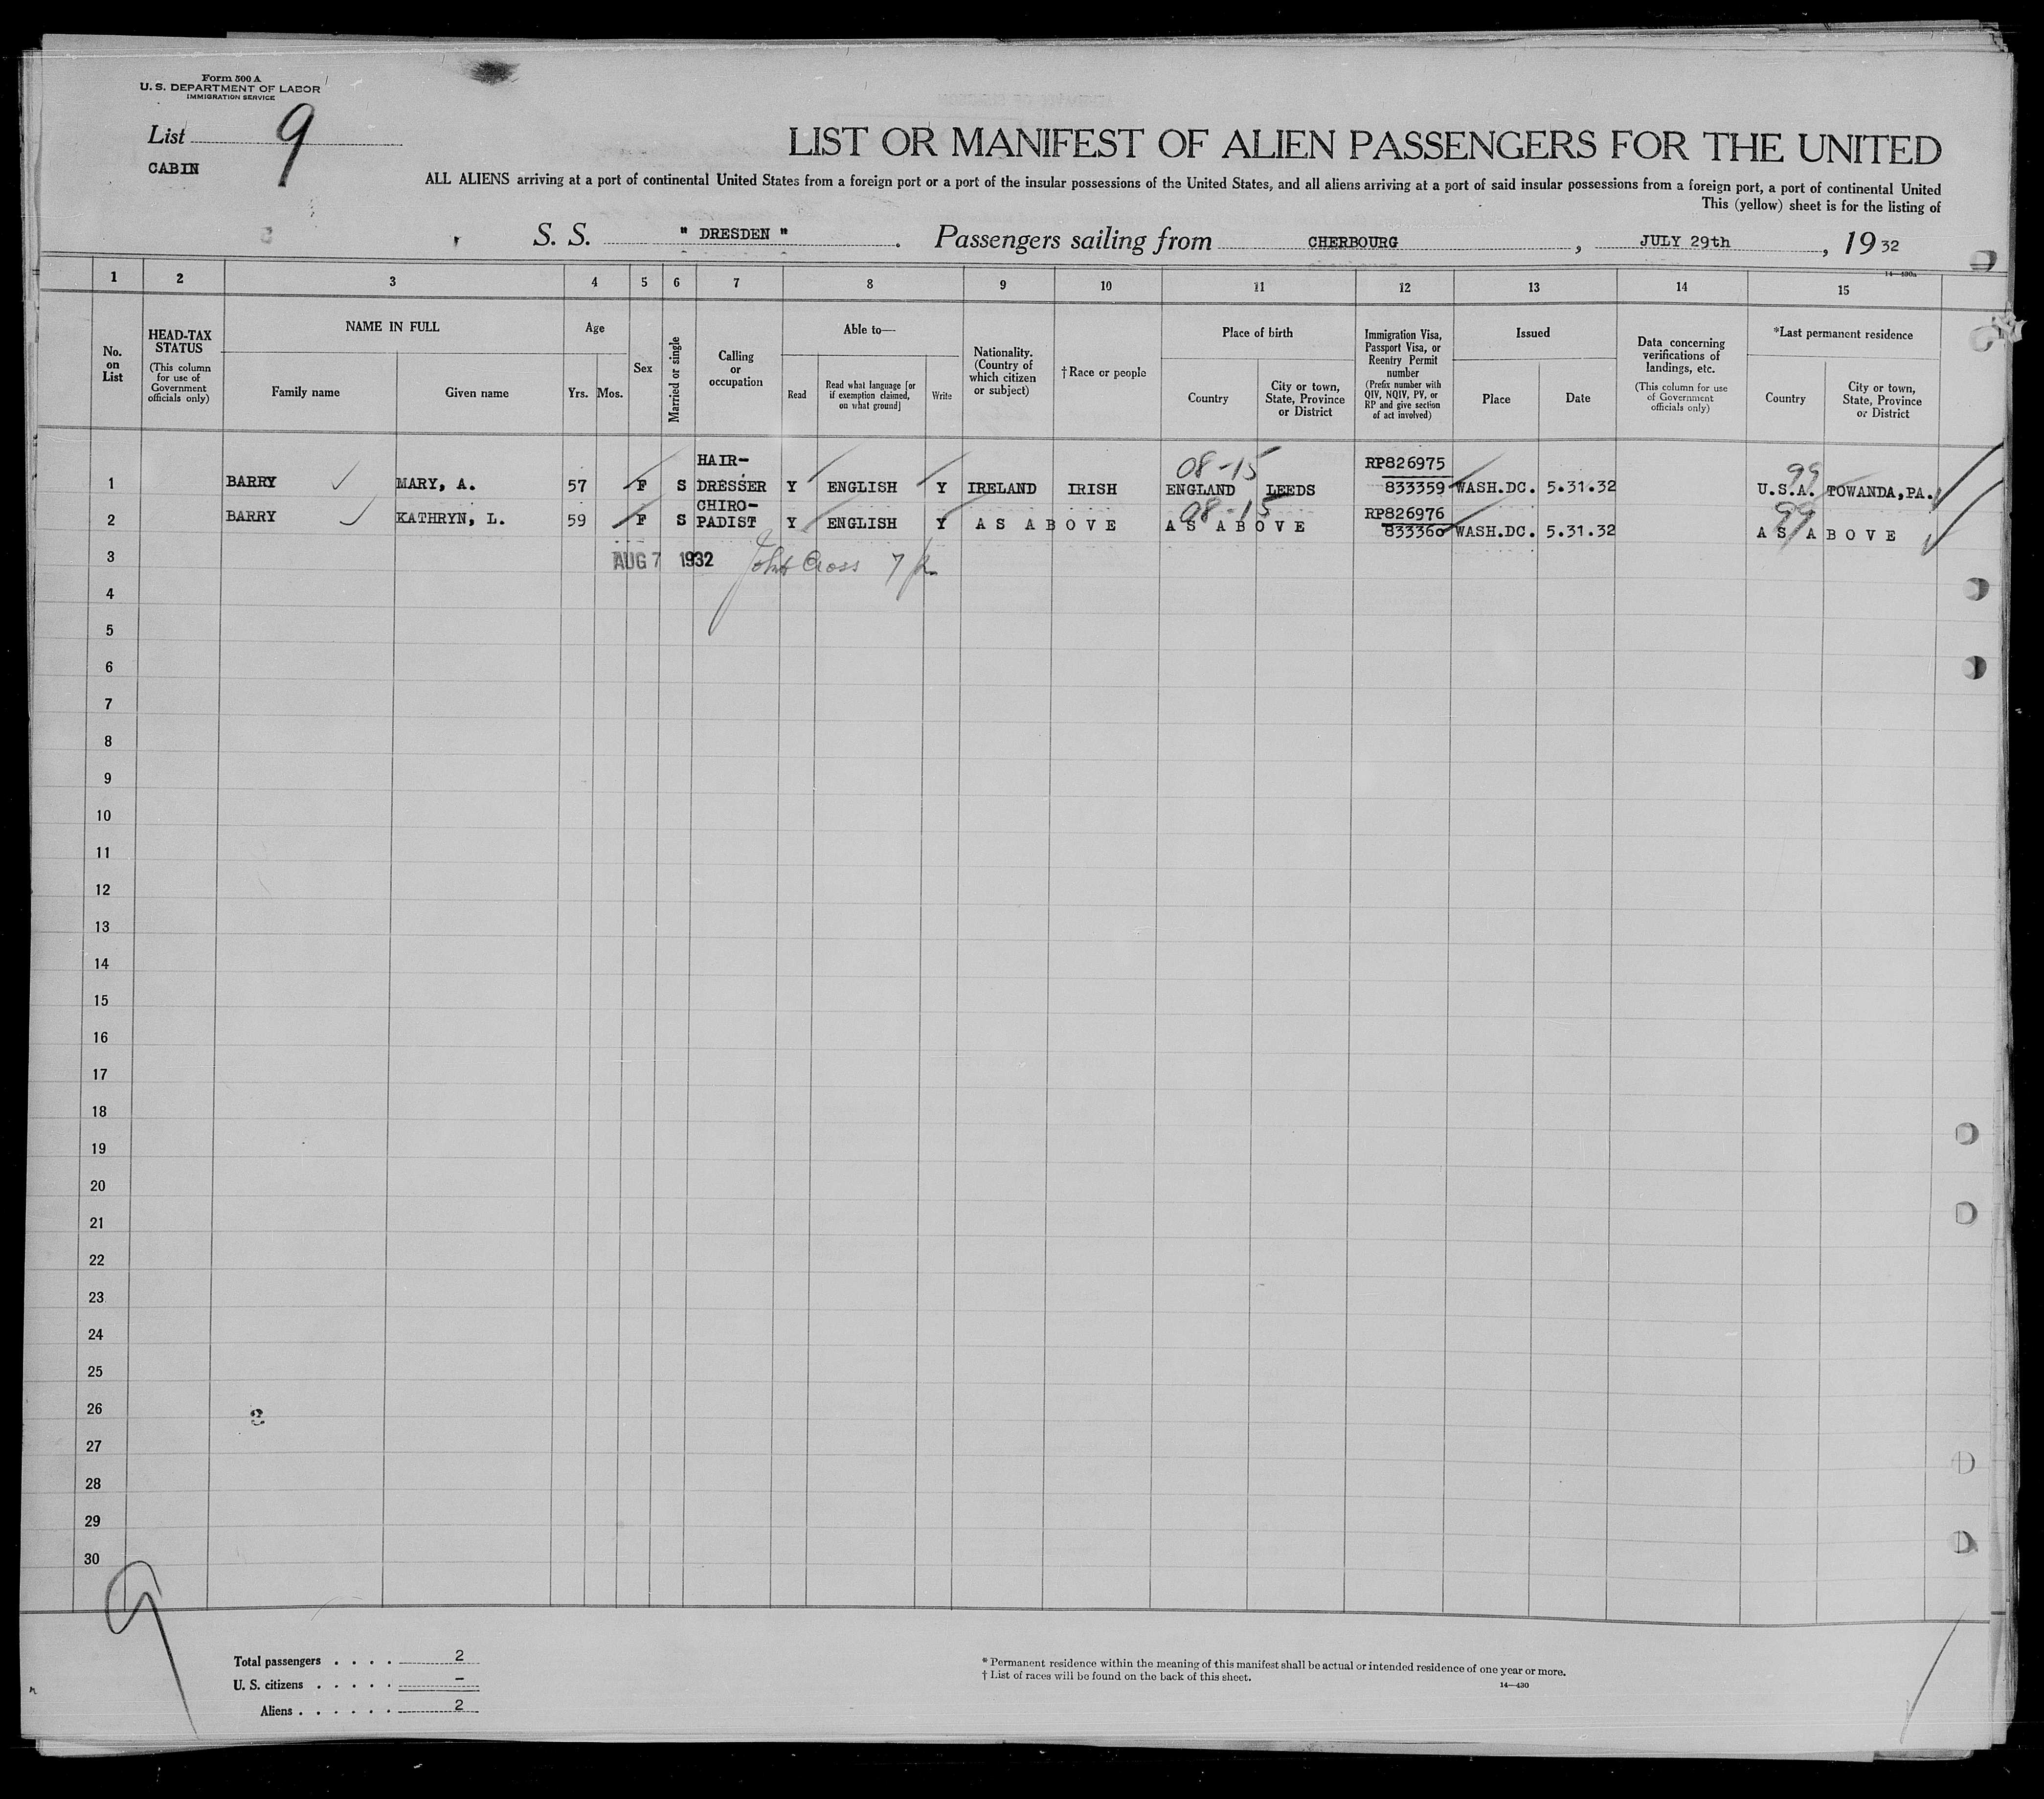 Form 500 A
U. S. DEPARTMENT OF LABOR
IMMIGRATION SERVICE
List 9
CABIN
LIST OR MANIFEST OF ALIEN PASSENGERS FOR THE UNITED
ALL ALIENS arriving at a port of continental United States from a foreign port or a port of the insular possessions of the United States, and all aliens arriving at a port of said insular possessions from a foreign port, a port of continental United
This (yellow) sheet is for the listing of
S. S. " DRESDEN " . Passengers sailing from CHERBOURG , JULY 29th , 19 32
14—430a
1 2 3 4 5 6 7 8 9 10 11 12 13 14 15
No. on List
HEAD-TAX STATUS
(This column for use of Government officials only)
NAME IN FULL
Family name
Given name
Age
Yrs. Mos.
Sex
Married or single
Calling or occupation
Able to—
Read
Read what language [or if exemption claimed, on what ground]
Write
Nationality. (Country of which citizen or subject)
† Race or people
Place of birth
Country
City or town, State, Province or District
Immigration Visa, Passport Visa, or Reentry Permit number
(Prefix number with QIV, NQIV, PV, or RP and give section of act involved)
Issued
Place
Date
Data concerning verifications of landings, etc.
(This column for use of Government officials only)
*Last permanent residence
Country
City or town, State, Province or District
HAIR- 08-15 RP826975 99
1 BARRY MARY, A. 57 F S DRESSER Y ENGLISH Y IRELAND IRISH ENGLAND LEEDS 833359 WASH.DC. 5.31.32 U.S.A. TOWANDA,PA.
CHIRO- 08-15 RP826976 99
2 BARRY KATHRYN, L. 59 F S PADIST Y ENGLISH Y AS ABOVE AS ABOVE 833360 WASH.DC. 5.31.32 AS ABOVE
3 AUG 7 1932 John Cross
4
5
6
7
8
9
10
11
12
13
14
15
16
17
18
19
20
21
22
23
24
25
26
27
28
29
30
9
Total passengers . . . . 2
U. S. citizens . . . . . —
Aliens . . . . . . 2
* Permanent residence within the meaning of this manifest shall be actual or intended residence of one year or more.
† List of races will be found on the back of this sheet.
14—430